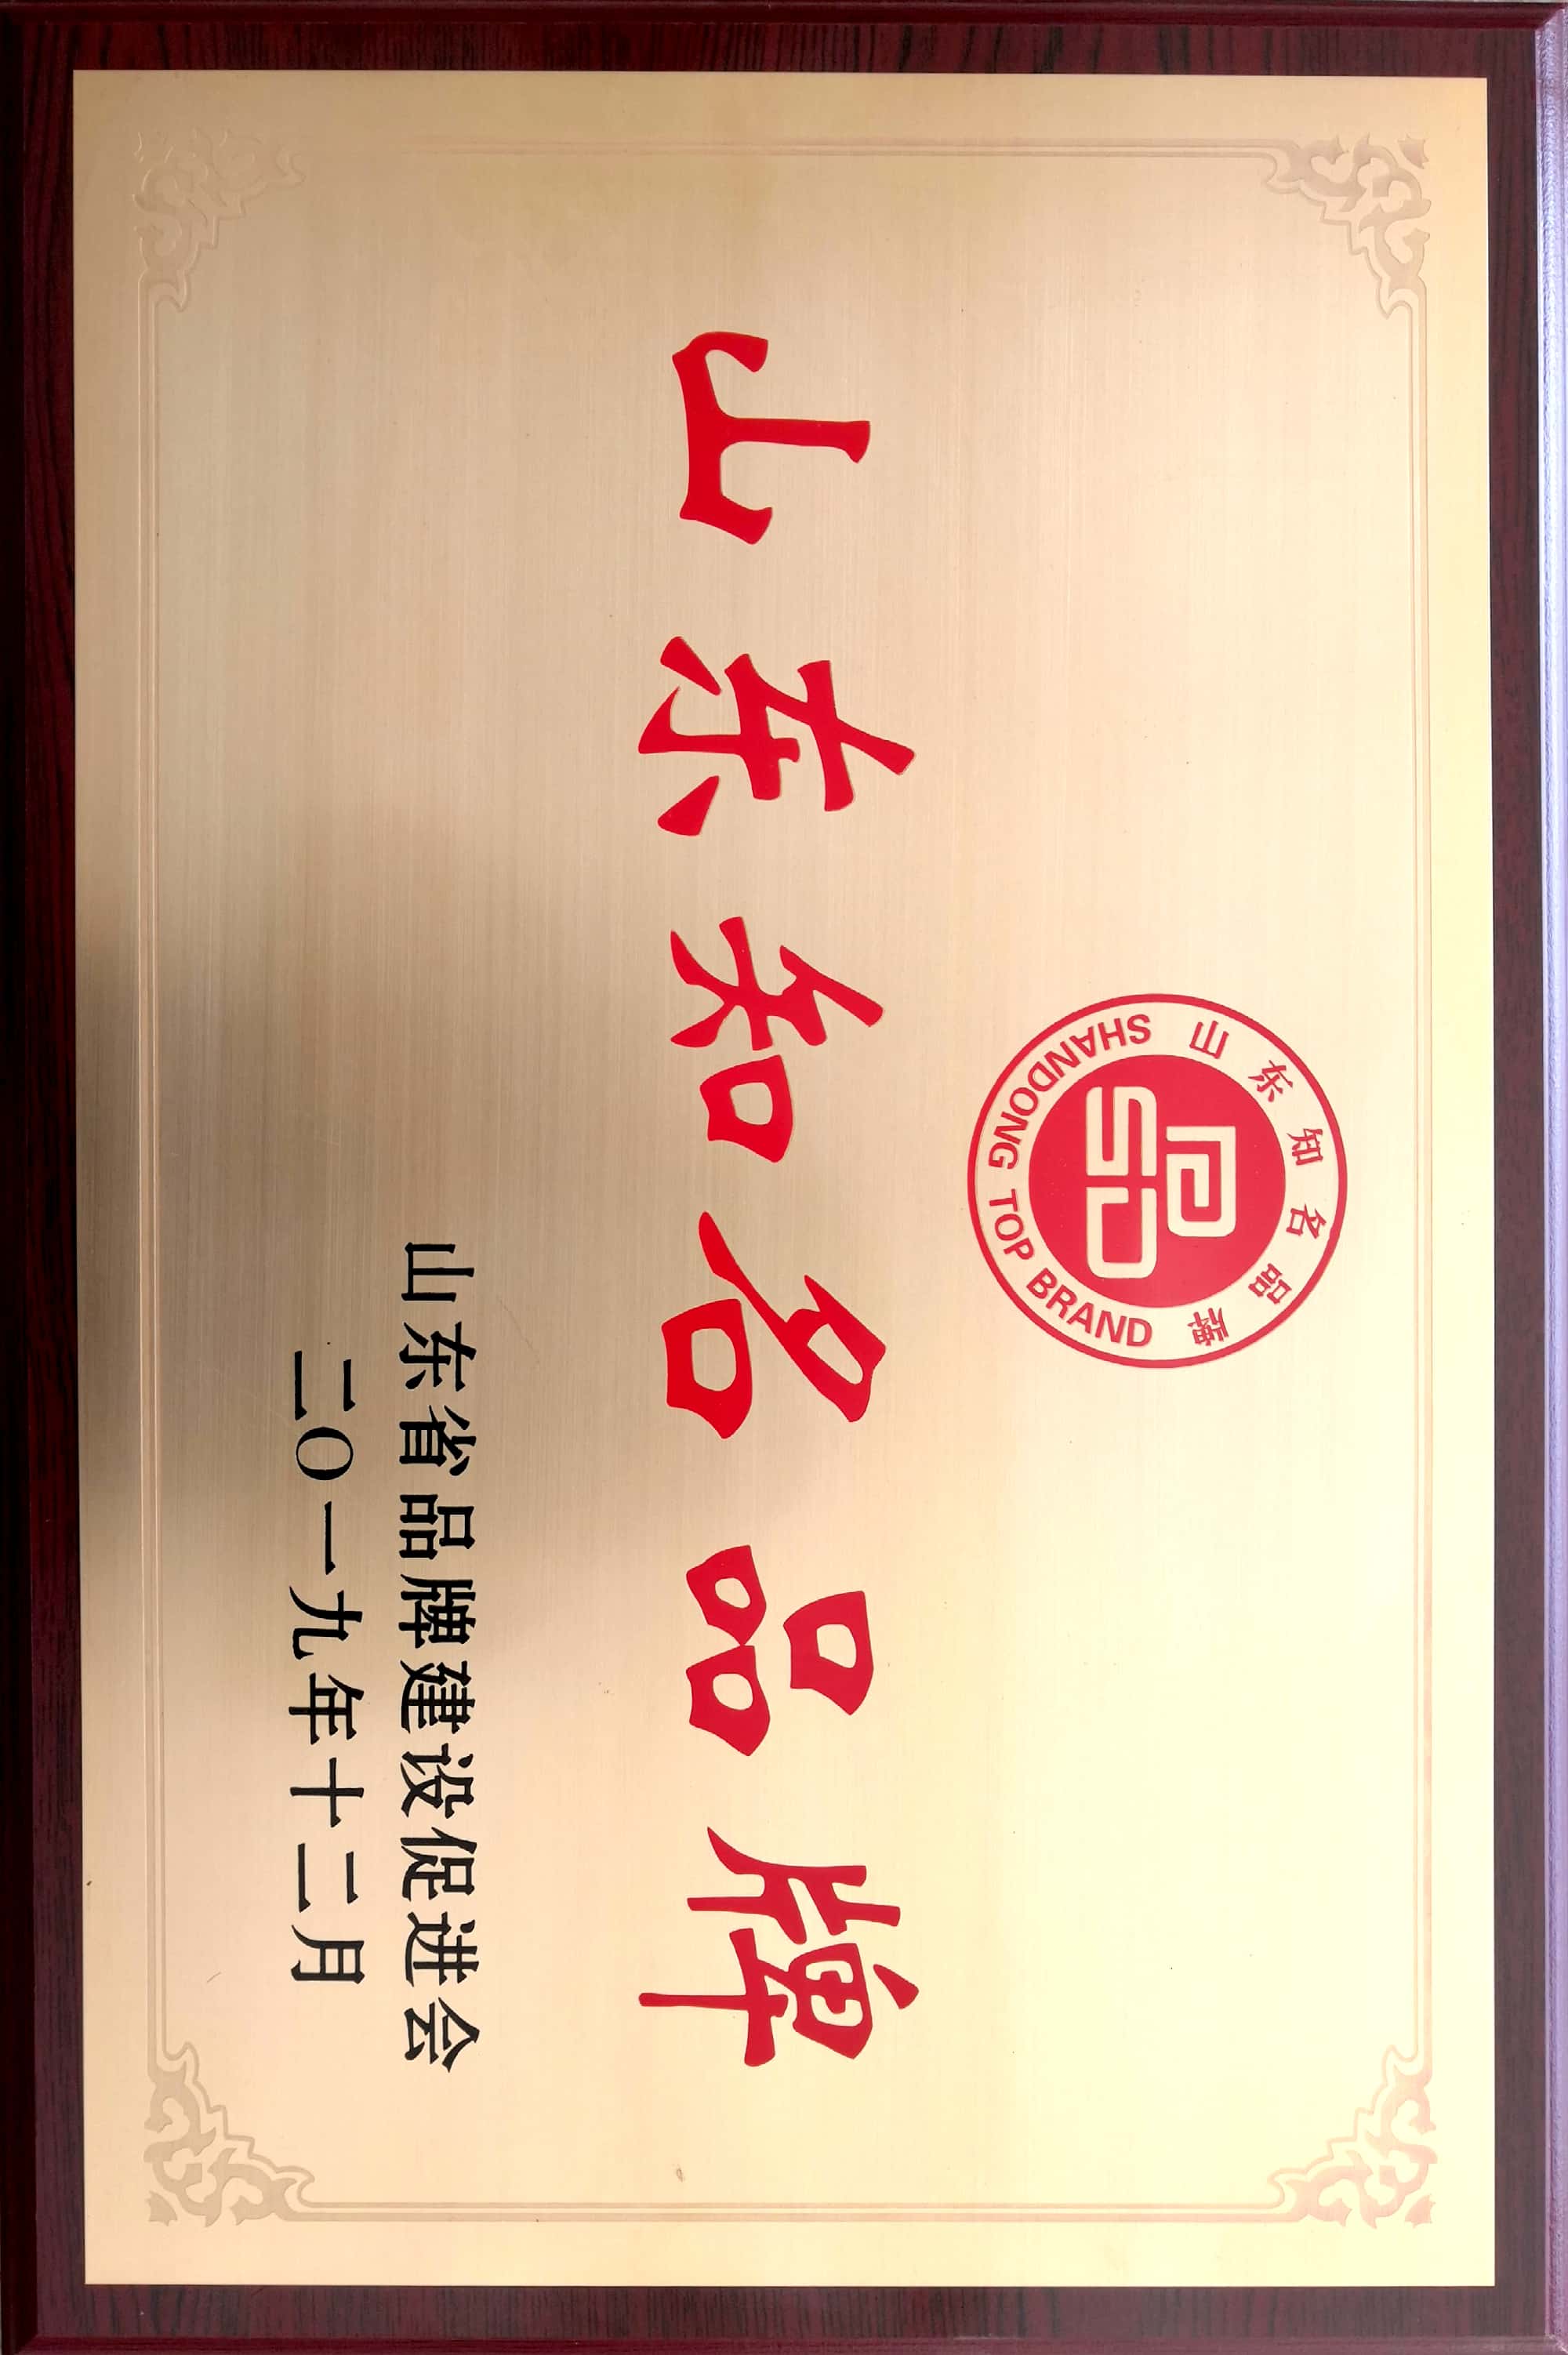 山东知名品牌
SHANDONG TOP BRAND
山东知名品牌
山东省品牌建设促进会
二〇一九年十二月